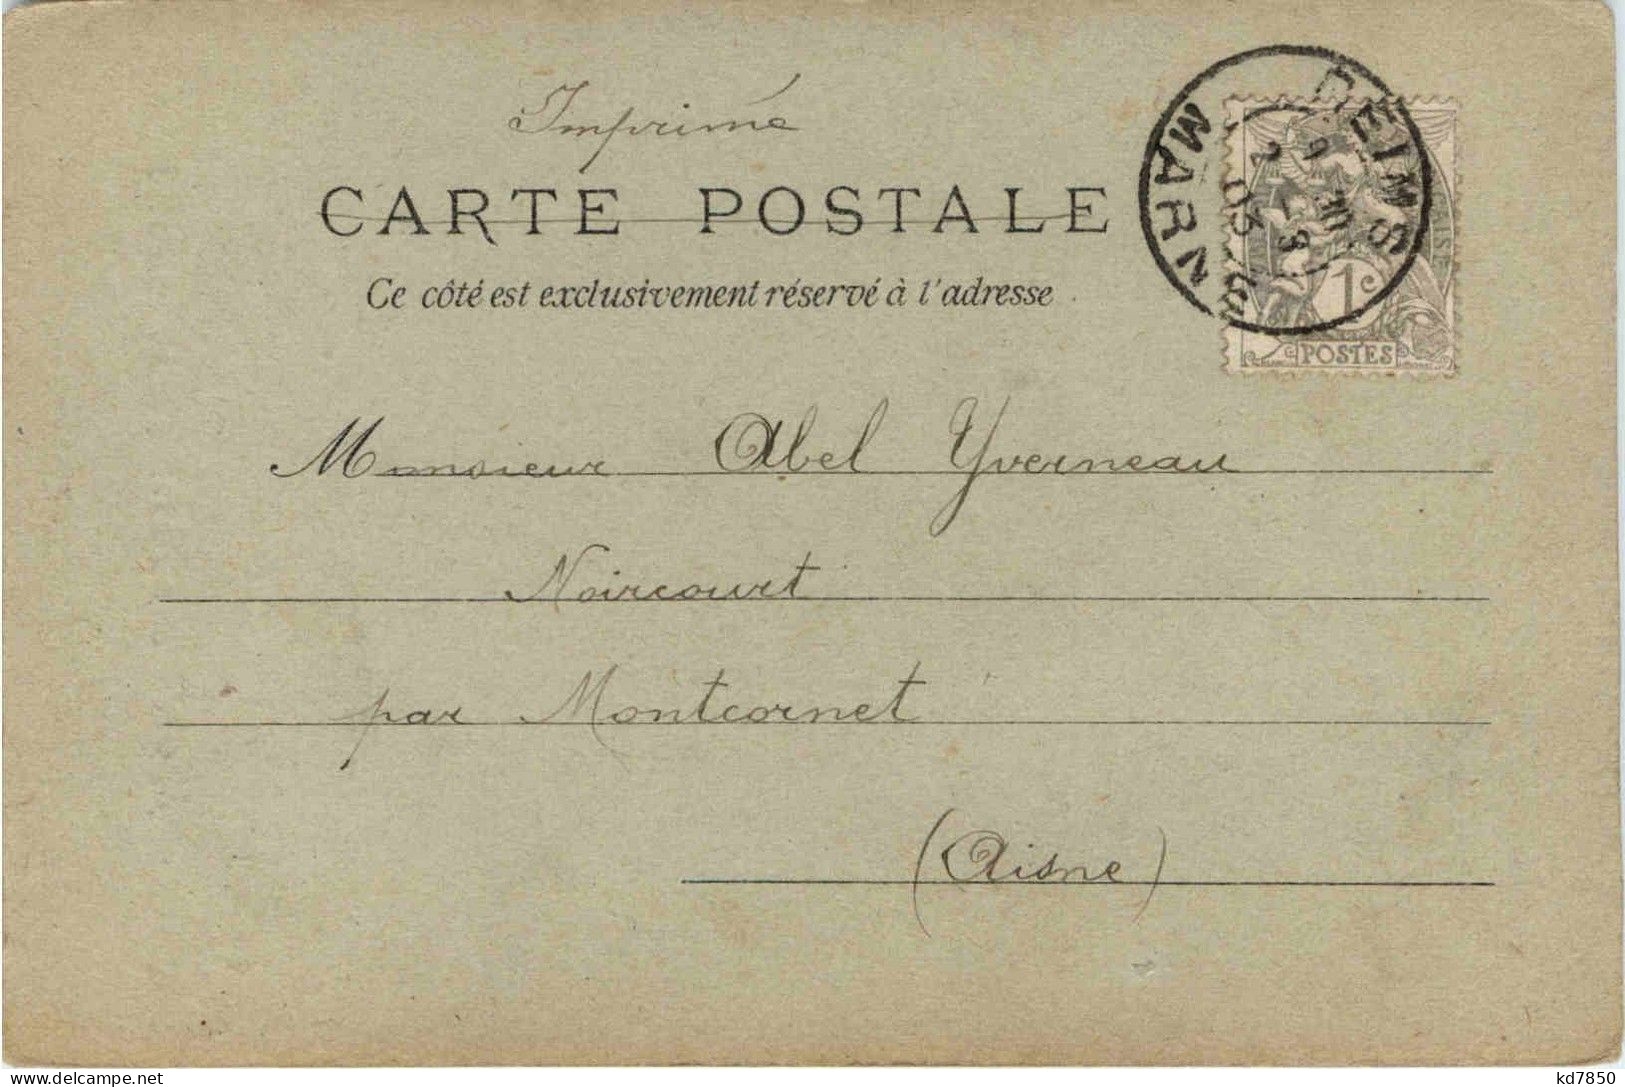 Imprimé
CARTE POSTALE
Ce côté est exclusivement réservé à l'adresse
REIMS
MARNE
03
1c
POSTES
Monsieur Abel Yverneau
Noircourt
par Montcornet
(Aisne)
www.delcampe.net
kd7850